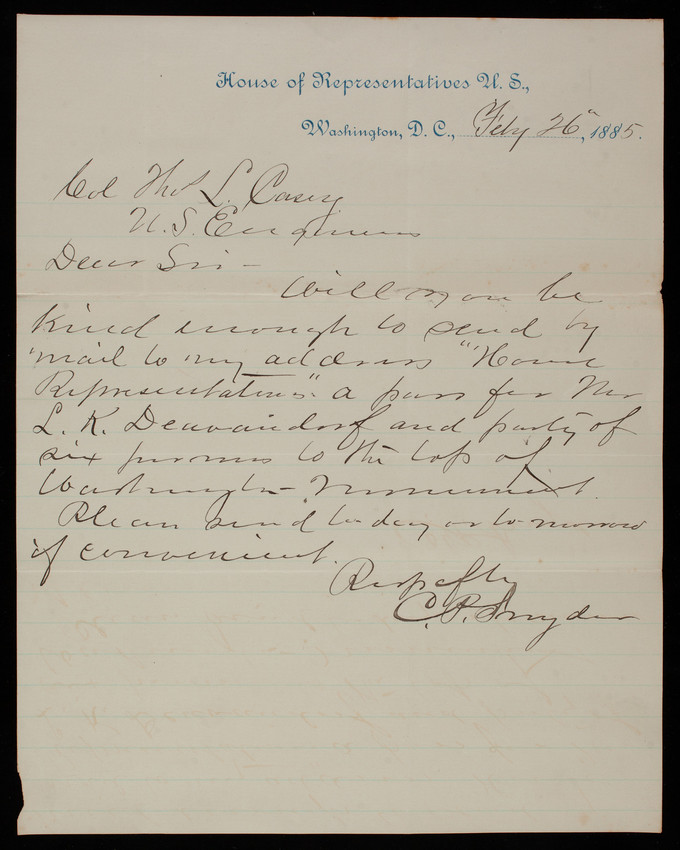 House of Representatives U. S.,
Washington, D. C., Feby 26", 1885.
Col Thos L. Casey
U. S. Engineers
Dear Sir -
Will you be
kind enough to send by
mail to my address "House
Representatives". a pass for Mr
L. K. and party of
six persons to the top of
Washington Monument.
Please send to day or to morrow
if convenient.
Respctfly
C. P. Snyder